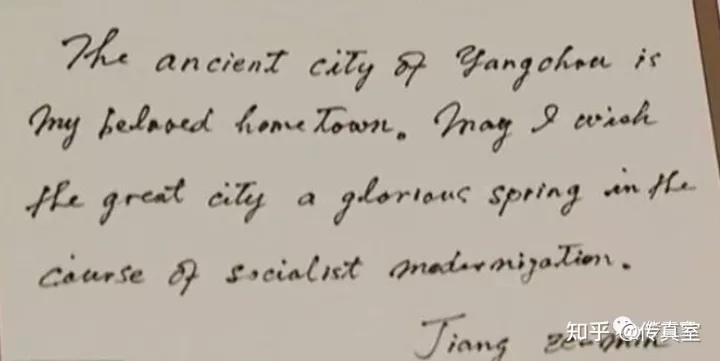 The ancient city of Yangchou is
my beloved hometown. May I wish
the great city a glorious spring in the
course of socialist modernization.
Jiang Ze-min
知乎 @传真室